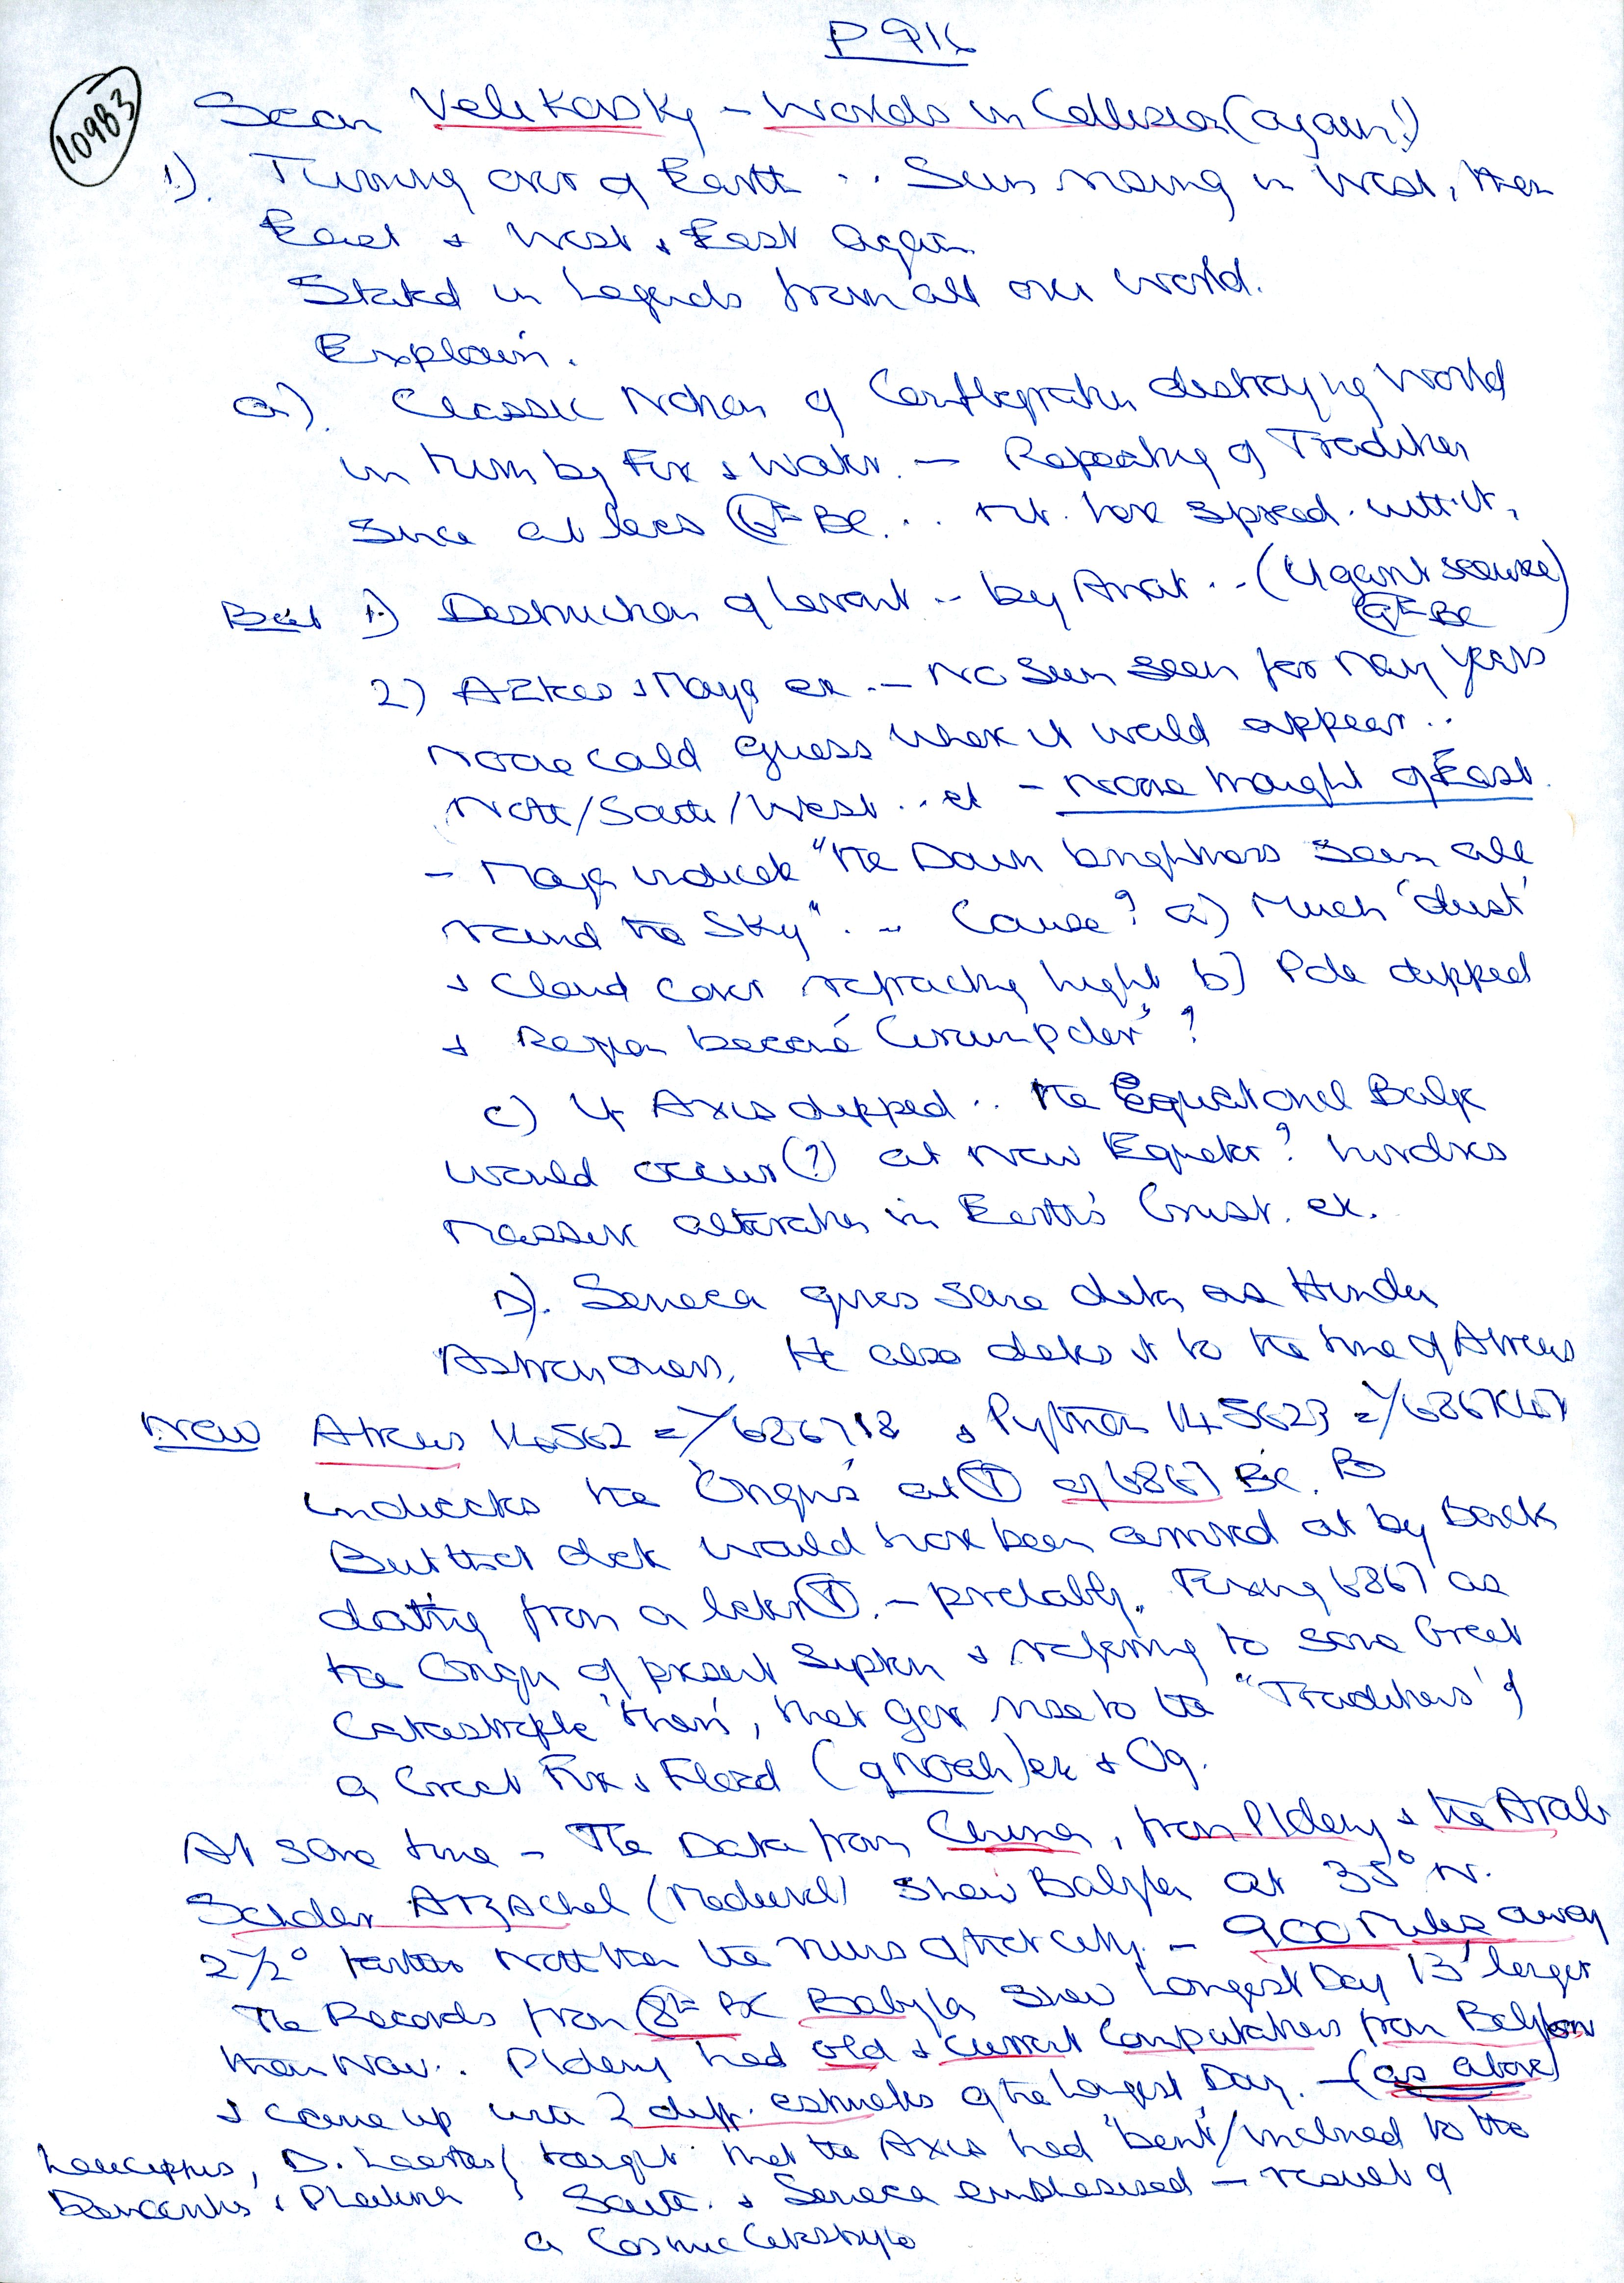 P 916
10983
Scan Velikovsky - Worlds in Collision (again!)
1). Turning over of Earth .. Sun rising in West, then
East & West & East again
Stated in Legends from all over world.
Explain.
a). Classic Notion of Conflagration destroying World
in turn by Fire & Water. — Repeating of Tradition
Since at less 6th BC. .. have spread. with it,
But 1) Destruction of Levant .. by Anat .. (Ugarit source)
BC
2) Aztecs & Maya ex. — No Sun seen for many years
None could guess where it would appear ..
North/South/West .. et - None thought of East.
- Maya indicate "the Dawn brightness seen all
round the Sky" .. Cause? a) Much 'dust'
& Cloud cover refracting light b) Pole dipped
& Region became 'Circumpolar' ?
c) If Axis dipped .. the Equatorial Bulge
would occur (?) at New Equator?
Massive alteration in Earth's Crust. ex.
D). Seneca gives same data as Hindu
Astronomers. He also dates it to the time of Atreus
New Atreus 14562 = /686718 &
indicates the 'Origins' at T of 6867 BC.
But that date would have been arrived at by back
dating from a later T. - probably. Fixing 6867 as
the Origin of present System & referring to some Great
Catastrophe 'then', that gave rise to the "Traditions" of
a Great Fire & Flood (of Noah) ex & Og.
At same time - The Data from China, from Ptolemy & the Arab
Scholar Arzachel (Medieval) Show Babylon at 35° N.
2½° further North than the ruins of that city. - 900 Miles away
The Records from 8th BC Babylon Show Longest Day 13' longer
than Now .. Ptolemy had old & current Computations from Babylon
& came up with 2 diff. estimates of the longest Day. - (as above)
Leucippus, D. Laertes / taught that the Axis had 'bent'/inclined to the
Democritus & South. & Seneca emphasised — result of
a Cosmic Catastrophe